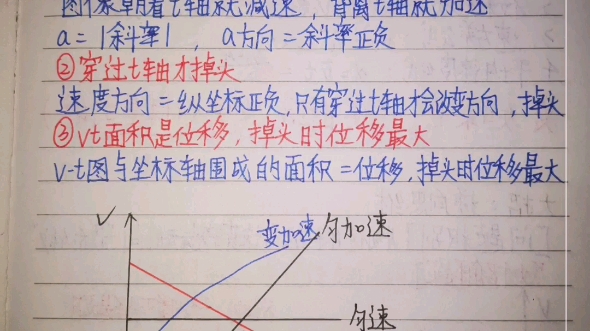 图像朝着t轴就减速，背离t轴就加速
a=|斜率|，a方向=斜率正负
②穿过t轴才掉头
速度方向=纵坐标正负,只有穿过t轴才会改变方向，掉头
③vt面积是位移，掉头时位移最大
v-t图与坐标轴围成的面积=位移，掉头时位移最大
V
变加速 匀加速
匀速